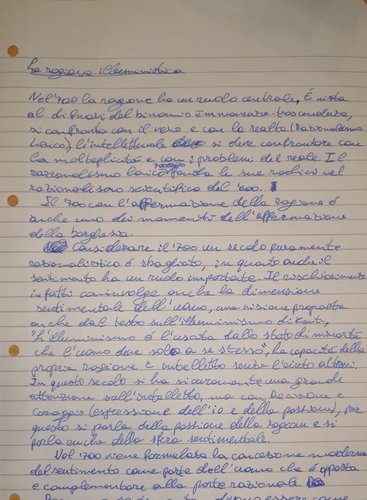 La ragione illuministica
Nel '700 la ragione ha un ruolo centrale. È vista
al di fuori del binomio immanenza-trascendenza,
si confronta con il vero e con la realtà (razionalismo
laico), l'intellettuale si deve confrontare con
la molteplicità e con i problemi del reale. Il
razionalismo laico fonda le sue radici nel
razionalismo scientifico del '600.
Il '700 con l'affermazione della ragione è
anche uno dei momenti dell'affermazione
della borghesia.
Considerare il '700 un secolo puramente
razionalistico è sbagliato, in quanto anche il
sentimento ha un ruolo importante. Il rischiaramento
infatti coinvolge anche la dimensione
sentimentale dell'uomo, una visione proposta
anche dal testo sull'illuminismo di Kant,
"L'illuminismo è l'uscita dallo stato di minorità
che l'uomo deve solo a se stesso", ha capacità della
propria ragione e intelletto senza l'aiuto altrui.
In questo secolo si ha sicuramente una grande
attenzione sull'intelletto, ma con Decisione e
Coraggio (espressione dell'io e della passione), per
questo si parla della passione della ragione e si
parla anche della sfera sentimentale.
Nel '700 viene formulata la concezione moderna
del sentimento come parte dell'uomo che è opposta
e complementare alla parte razionale.